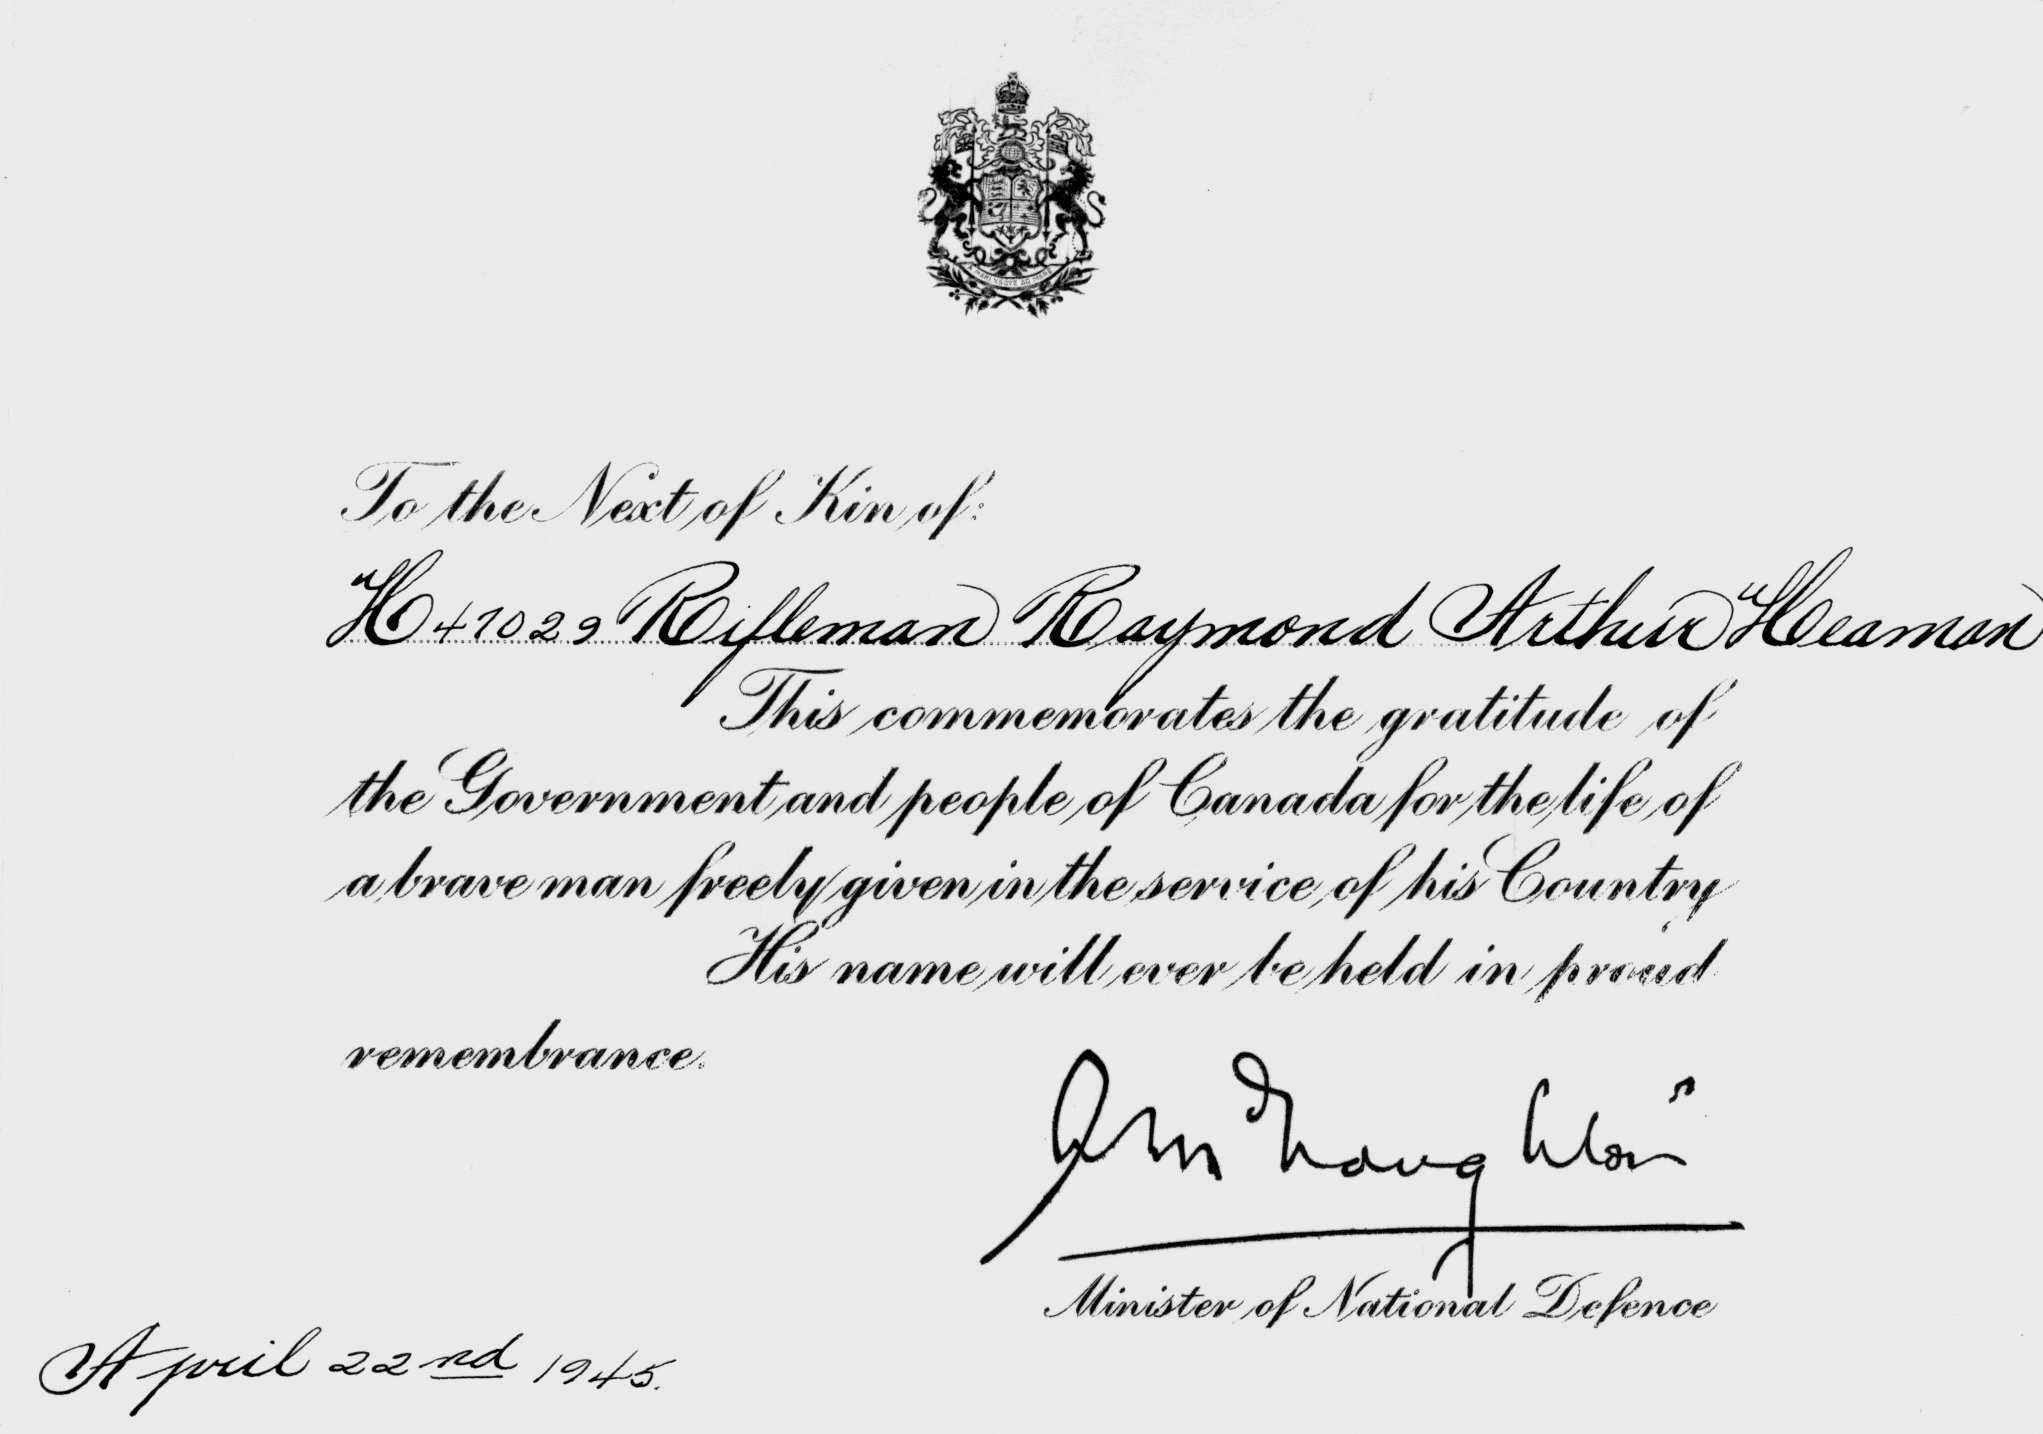 To the Next of Kin of:
H47029 Rifleman Raymond Arthur Heaman
This commemorates the gratitude of
the Government and people of Canada for the life of
a brave man freely given in the service of his Country
His name will ever be held in proud
remembrance.
Minister of National Defence
April 22nd 1945.